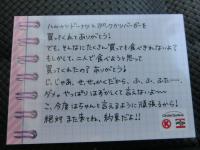 ハロウィンドーナツとポークカツバーガーを
買ってくれてありがとう!
でも、そんなにたくさん買っても食べきれないよ?
もしかして、二人で食べようと思って
買ってくれたの?ありがとう!
じ、じゃあ、せ、せっかくだから、ふ、ふ、ふた……、
ダメ。やっぱりはずかしくて言えないよ〜
こ、今度はちゃんと言えるように頑張るから!
絶対また来てね、約束だよ!!